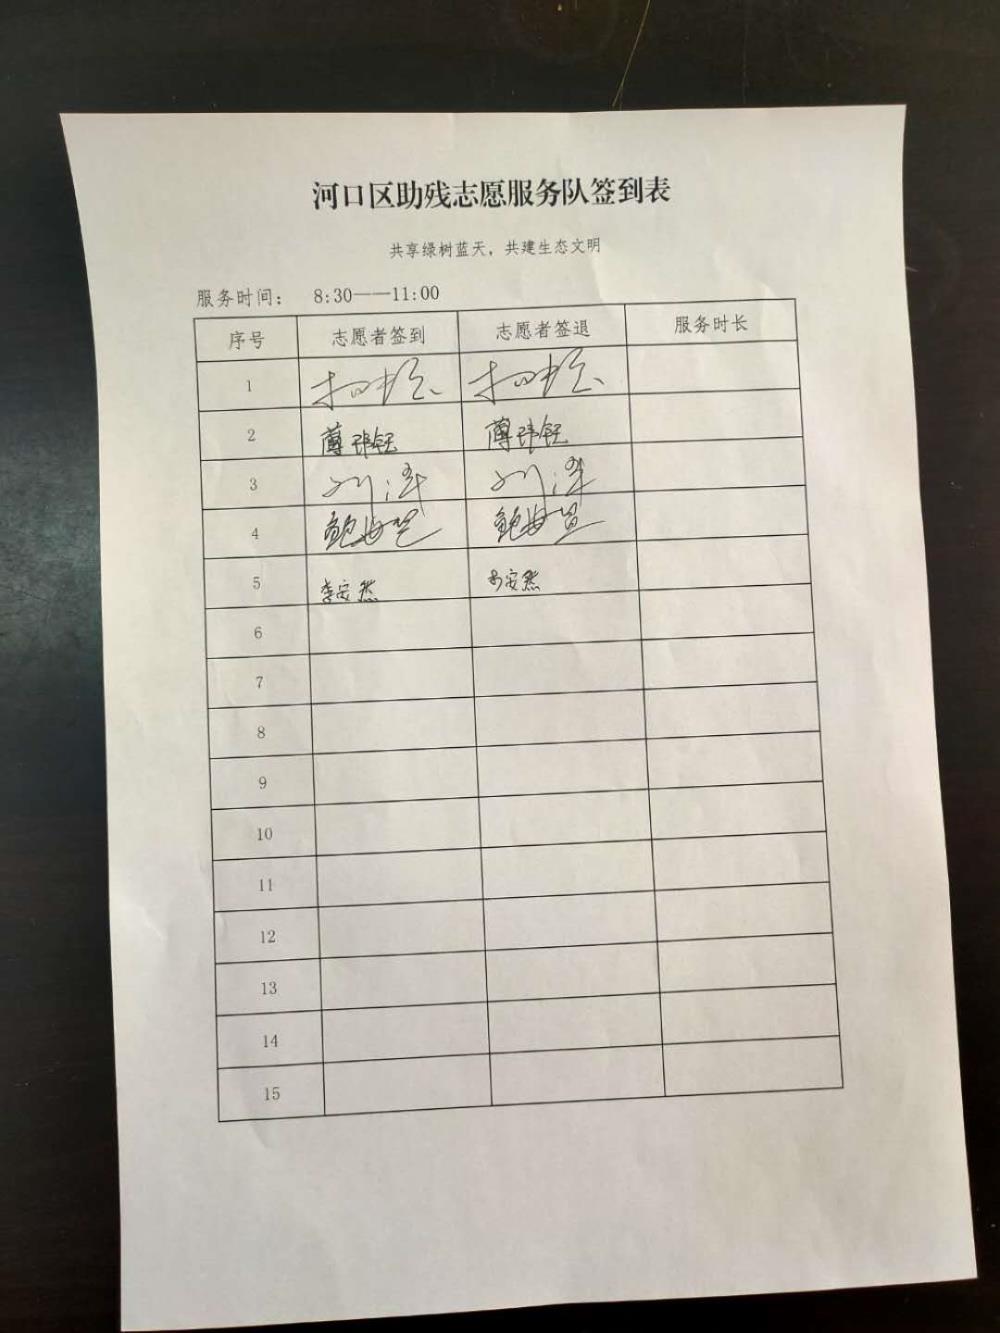 河口区助残志愿服务队签到表
共享绿树蓝天，共建生态文明
服务时间： 8:30——11:00
序号 志愿者签到 志愿者签退 服务时长
1
2 薄玮钰 薄玮钰
3 刘泽 刘泽
4 鲍海 鲍海
5 李安然 李安然
6
7
8
9
10
11
12
13
14
15